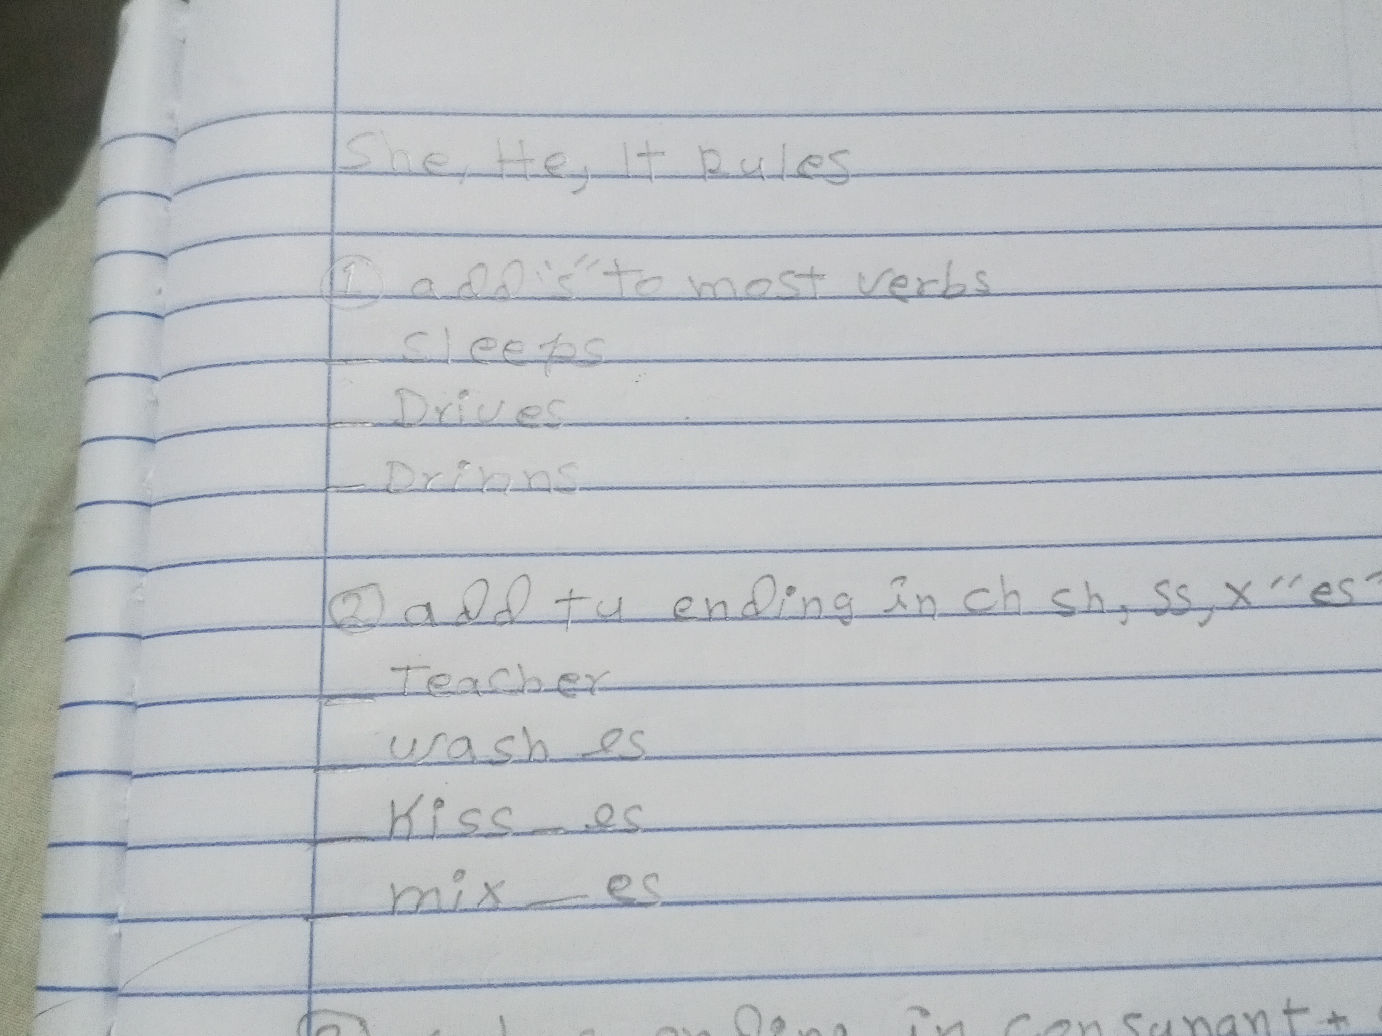 She, He, It Rules
① add "s" to most verbs
– sleeps
– Drives
– Drinns
② add tu ending in ch sh, ss, x "es"
– Teacher
wash es
– Kiss – es
– mix – es
ending in consunant +